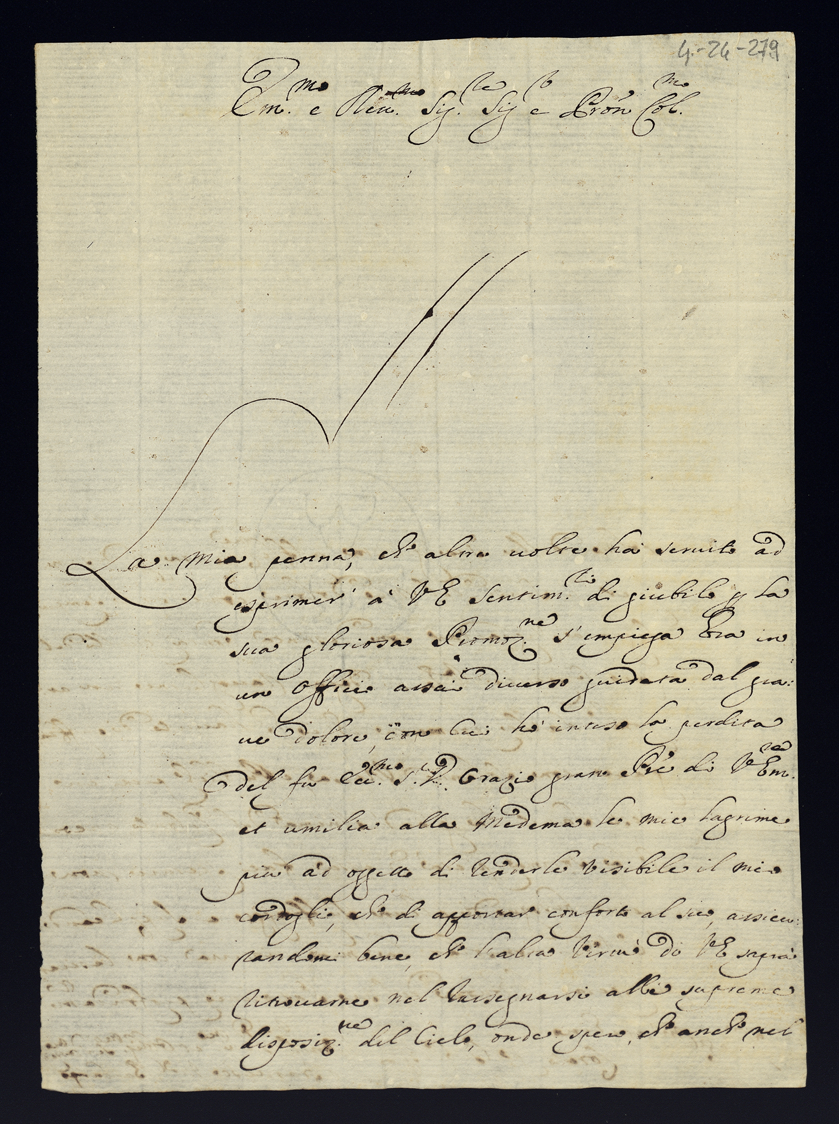 4.-24-279
Em.mo e Reu.mo Sig.re Sig.r e Prōn Col.mo
La mia penna, ch' altre uolte ha seruito ad
esprimer' à VE Sentim.ti di giubilo p la
sua gloriosa Promoz.ne s'impiega ora in
un offitio assai diuerso guidata dal gra:
ue dolore, con cui hò inteso la perdita
del fu Ecc.mo S.r D. Orazio gran Prē di VEm.za
et umilia alla Medema le mie lagrime
più ad oggetto di renderle visibile il mio
cordoglio, che di apportar conforto al suo, assicu:
randomi bene, che l'alta Virtù di VE saprà
ritrouarne nel rassegnarsi alle supreme
disposiz.ne del Cielo, onde spero, che anche nel